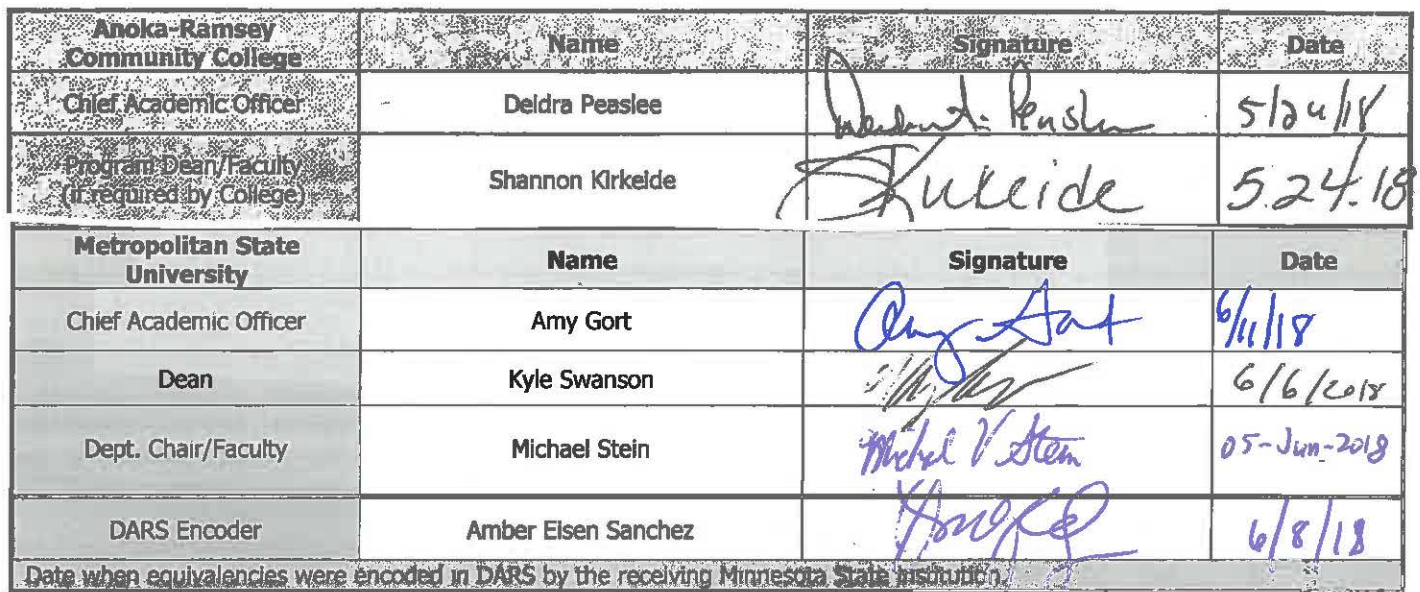 Anoka-Ramsey Community College Name Signature Date
Chief Academic Officer Deidra Peaslee 5/24/18
Program Dean/Faculty (if required by College) Shannon Kirkeide Kirkeide 5.24.18
Metropolitan State University Name Signature Date
Chief Academic Officer Amy Gort Amy Gort 6/11/18
Dean Kyle Swanson 6/6/2018
Dept. Chair/Faculty Michael Stein Michael V Stein 05-Jun-2018
DARS Encoder Amber Elsen Sanchez 6/8/18
Date when equivalencies were encoded in DARS by the receiving Minnesota State institution.